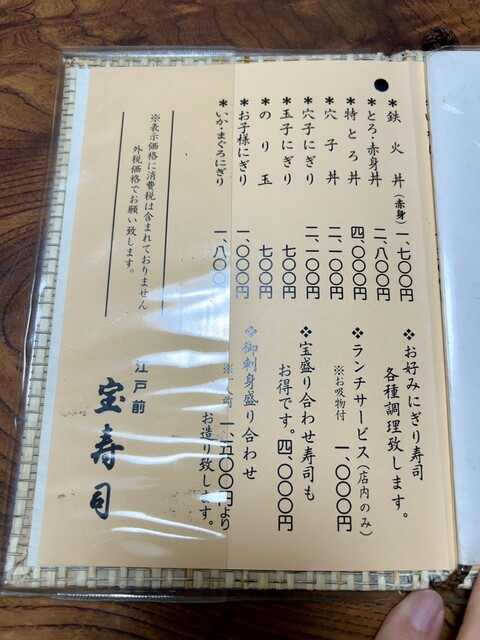 ＊鉄火丼(赤身) 一、七〇〇円
＊とろ・赤身丼 二、八〇〇円
＊特とろ丼 四、〇〇〇円
＊穴子丼 二、一〇〇円
＊穴子にぎり 二、一〇〇円
＊玉子にぎり 七〇〇円
＊のり玉 七〇〇円
＊お子様にぎり 一、〇〇〇円
＊いか・まぐろにぎり 一、八〇〇
❖お好みにぎり寿司
各種調理致します。
❖ランチサービス(店内のみ)
※お吸物付 一、〇〇〇円
❖宝盛り合わせ寿司も
お得です。四、〇〇〇円
❖御刺身盛り合わせ
一、五〇〇円より
お造り致します。
※表示価格に消費税は含まれておりません
外税価格でお願い致します。
江戸前
宝寿司